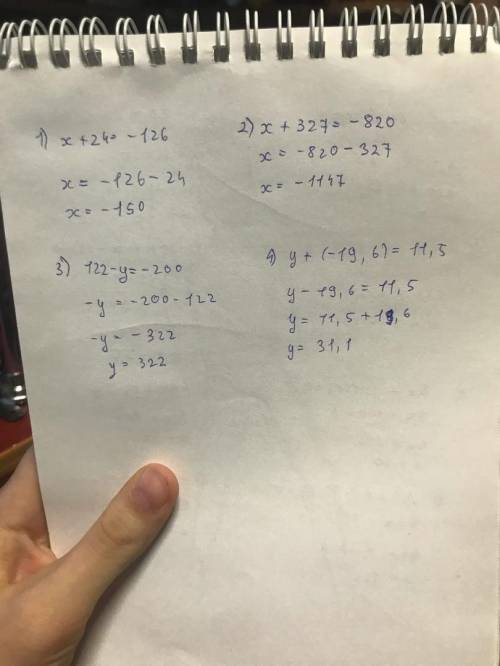 1) x + 24 = -126
x = -126 - 24
x = -150
2) x + 327 = -820
x = -820 - 327
x = -1147
3) 122 - y = -200
-y = -200 - 122
-y = -322
y = 322
4) y + (-19,6) = 11,5
y - 19,6 = 11,5
y = 11,5 + 19,6
y = 31,1